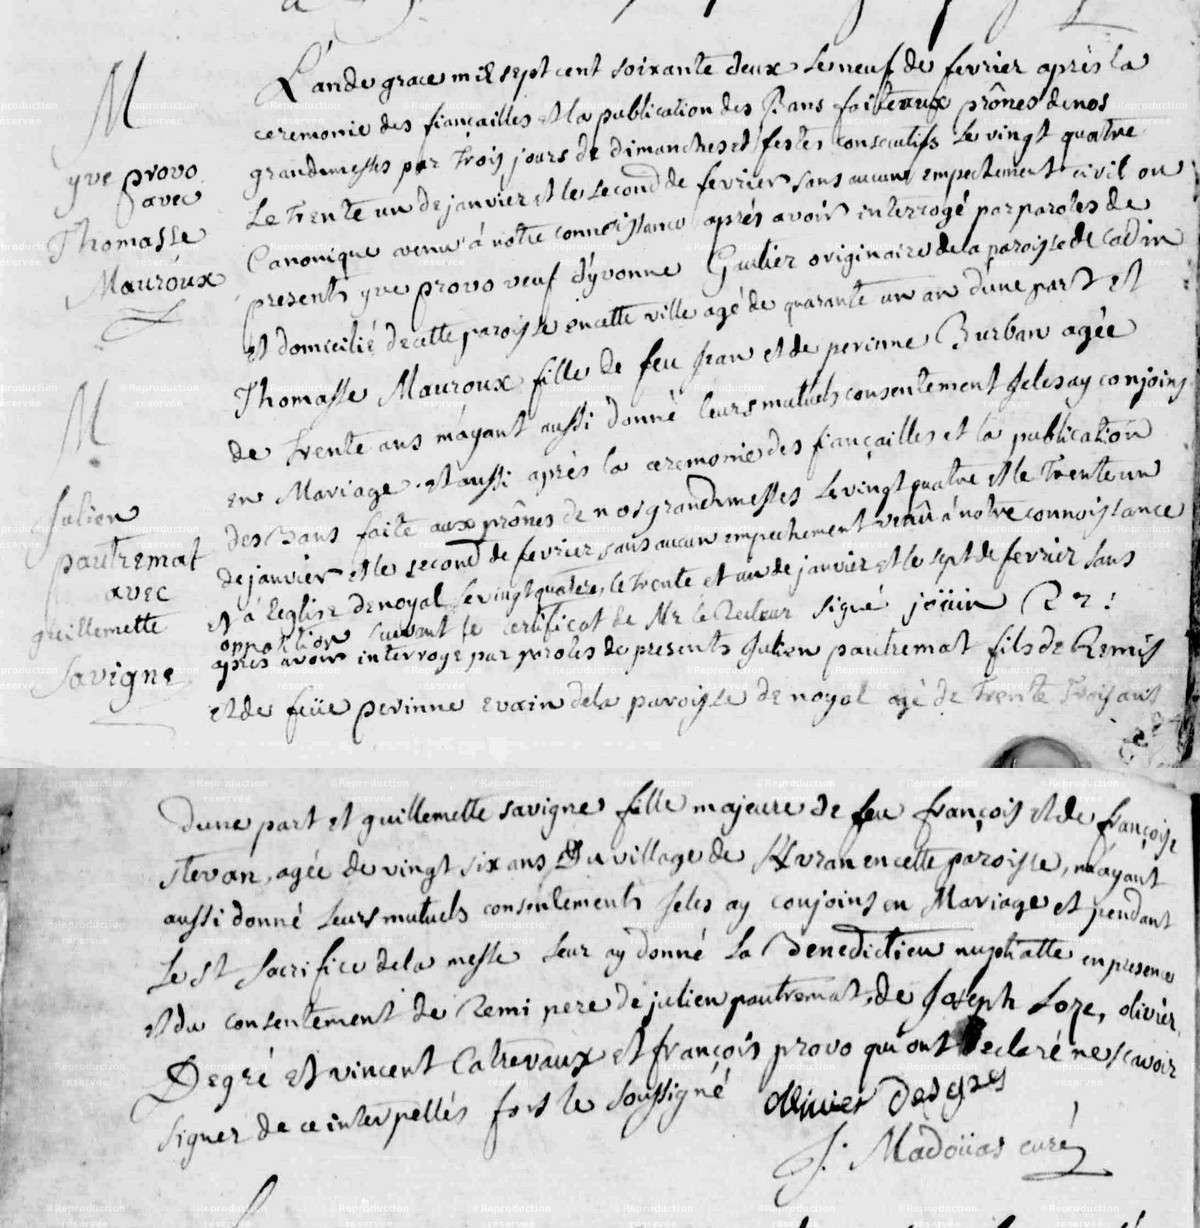 M
yve provo
avec
Thomasse
Mauroux
L'an de grace mil sept cent soixante deux le neuf de fevrier après la
ceremonie des fiançailles et la publication des Bans faite aux prônes de nos
grandmesses par trois jours de dimanches et festes consecutifs le vingt quatre
Le trente un de janvier et le second de fevrier sans aucun empechement civil ou
Canonique venu à notre connoissance après avoir interrogé par paroles de
presents yve provo veuf d'yvonne Gaulier originaire de la paroisse de Cadin
et domicilié de cette paroisse en cette ville agé de quarante un an d'une part et
Thomasse Mauroux fille de feu Jean et de perinne Burban agée
de trente ans m'ayant aussi donné leurs mutuels consentement je les ay conjoins
en Mariage et aussi après la ceremonie des fiançailles et la publication
des Bans faite aux prônes de nos grandmesses le vingt quatre et le trente un
de janvier et le second de fevrier sans aucun empechement venu à notre connoissance
et à leglise de noyal le vingt quatre, le trente et un de janvier et le sept de fevrier sans
opposition suivant le certificat de Mr le Recteur signé joüin Rr :
après avoir interroge par paroles de presents Julien pautremat fils de Remis
et de feüe perinne evain de la paroisse de noyal agé de trente trois ans
M
Julien
pautremat
avec
guillemette
Savigne
d'une part et guillemette savigne fille majeure de feu françois et de françoise
stevan, agée de vingt six ans du village de Kvran en cette paroisse, m'ayant
aussi donné leurs mutuels consentements je les ay conjoins en Mariage et pendant
le st sacrifice de la messe leur ay donné la Benediction nuptialle en presence
et du consentement de Remi pere de julien pautremat, de Joseph Loze, olivier
Degré et vincent Catrevaux et françois provo qui ont declaré ne scavoir
signer de ce interpellés fors le soussigné
ollivier Desgres
J. Madoüas curé